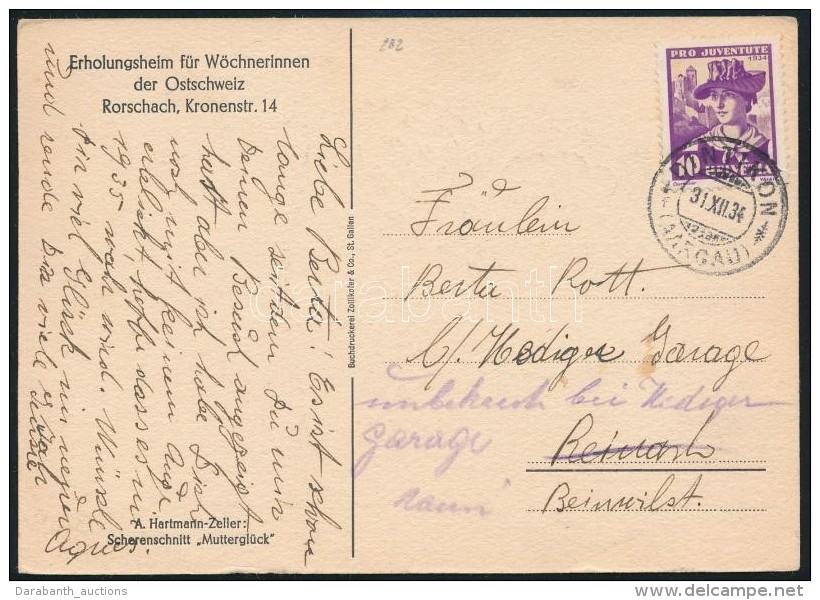 Erholungsheim für Wöchnerinnen
der Ostschweiz
Rorschach, Kronenstr. 14
Liebe Berta! Es ist schon
lange seitdem Du mir
Deinen Besuch angezeigt
hast aber ich habe Dich
noch mit keinem Aug
erblickt, hoffe dass es
1935 wahr wird. Wünsche
Dir viel Glück im neuen
und sende Dir viele
Agnes.
A. Hartmann-Zeller:
Scherenschnitt „Mutterglück"
Buchdruckerei Zollikofer & Co., St. Gallen
282
PRO JUVENTUTE
1934
10
HELVETIA
31.XII.34
(AARGAU)
Fräulein
Berta Rott.
b/ Hediger Garage
unbekannt bei Hediger
Garage
Reinach
Beinwilst.
darabanth
Darabanth_auctions